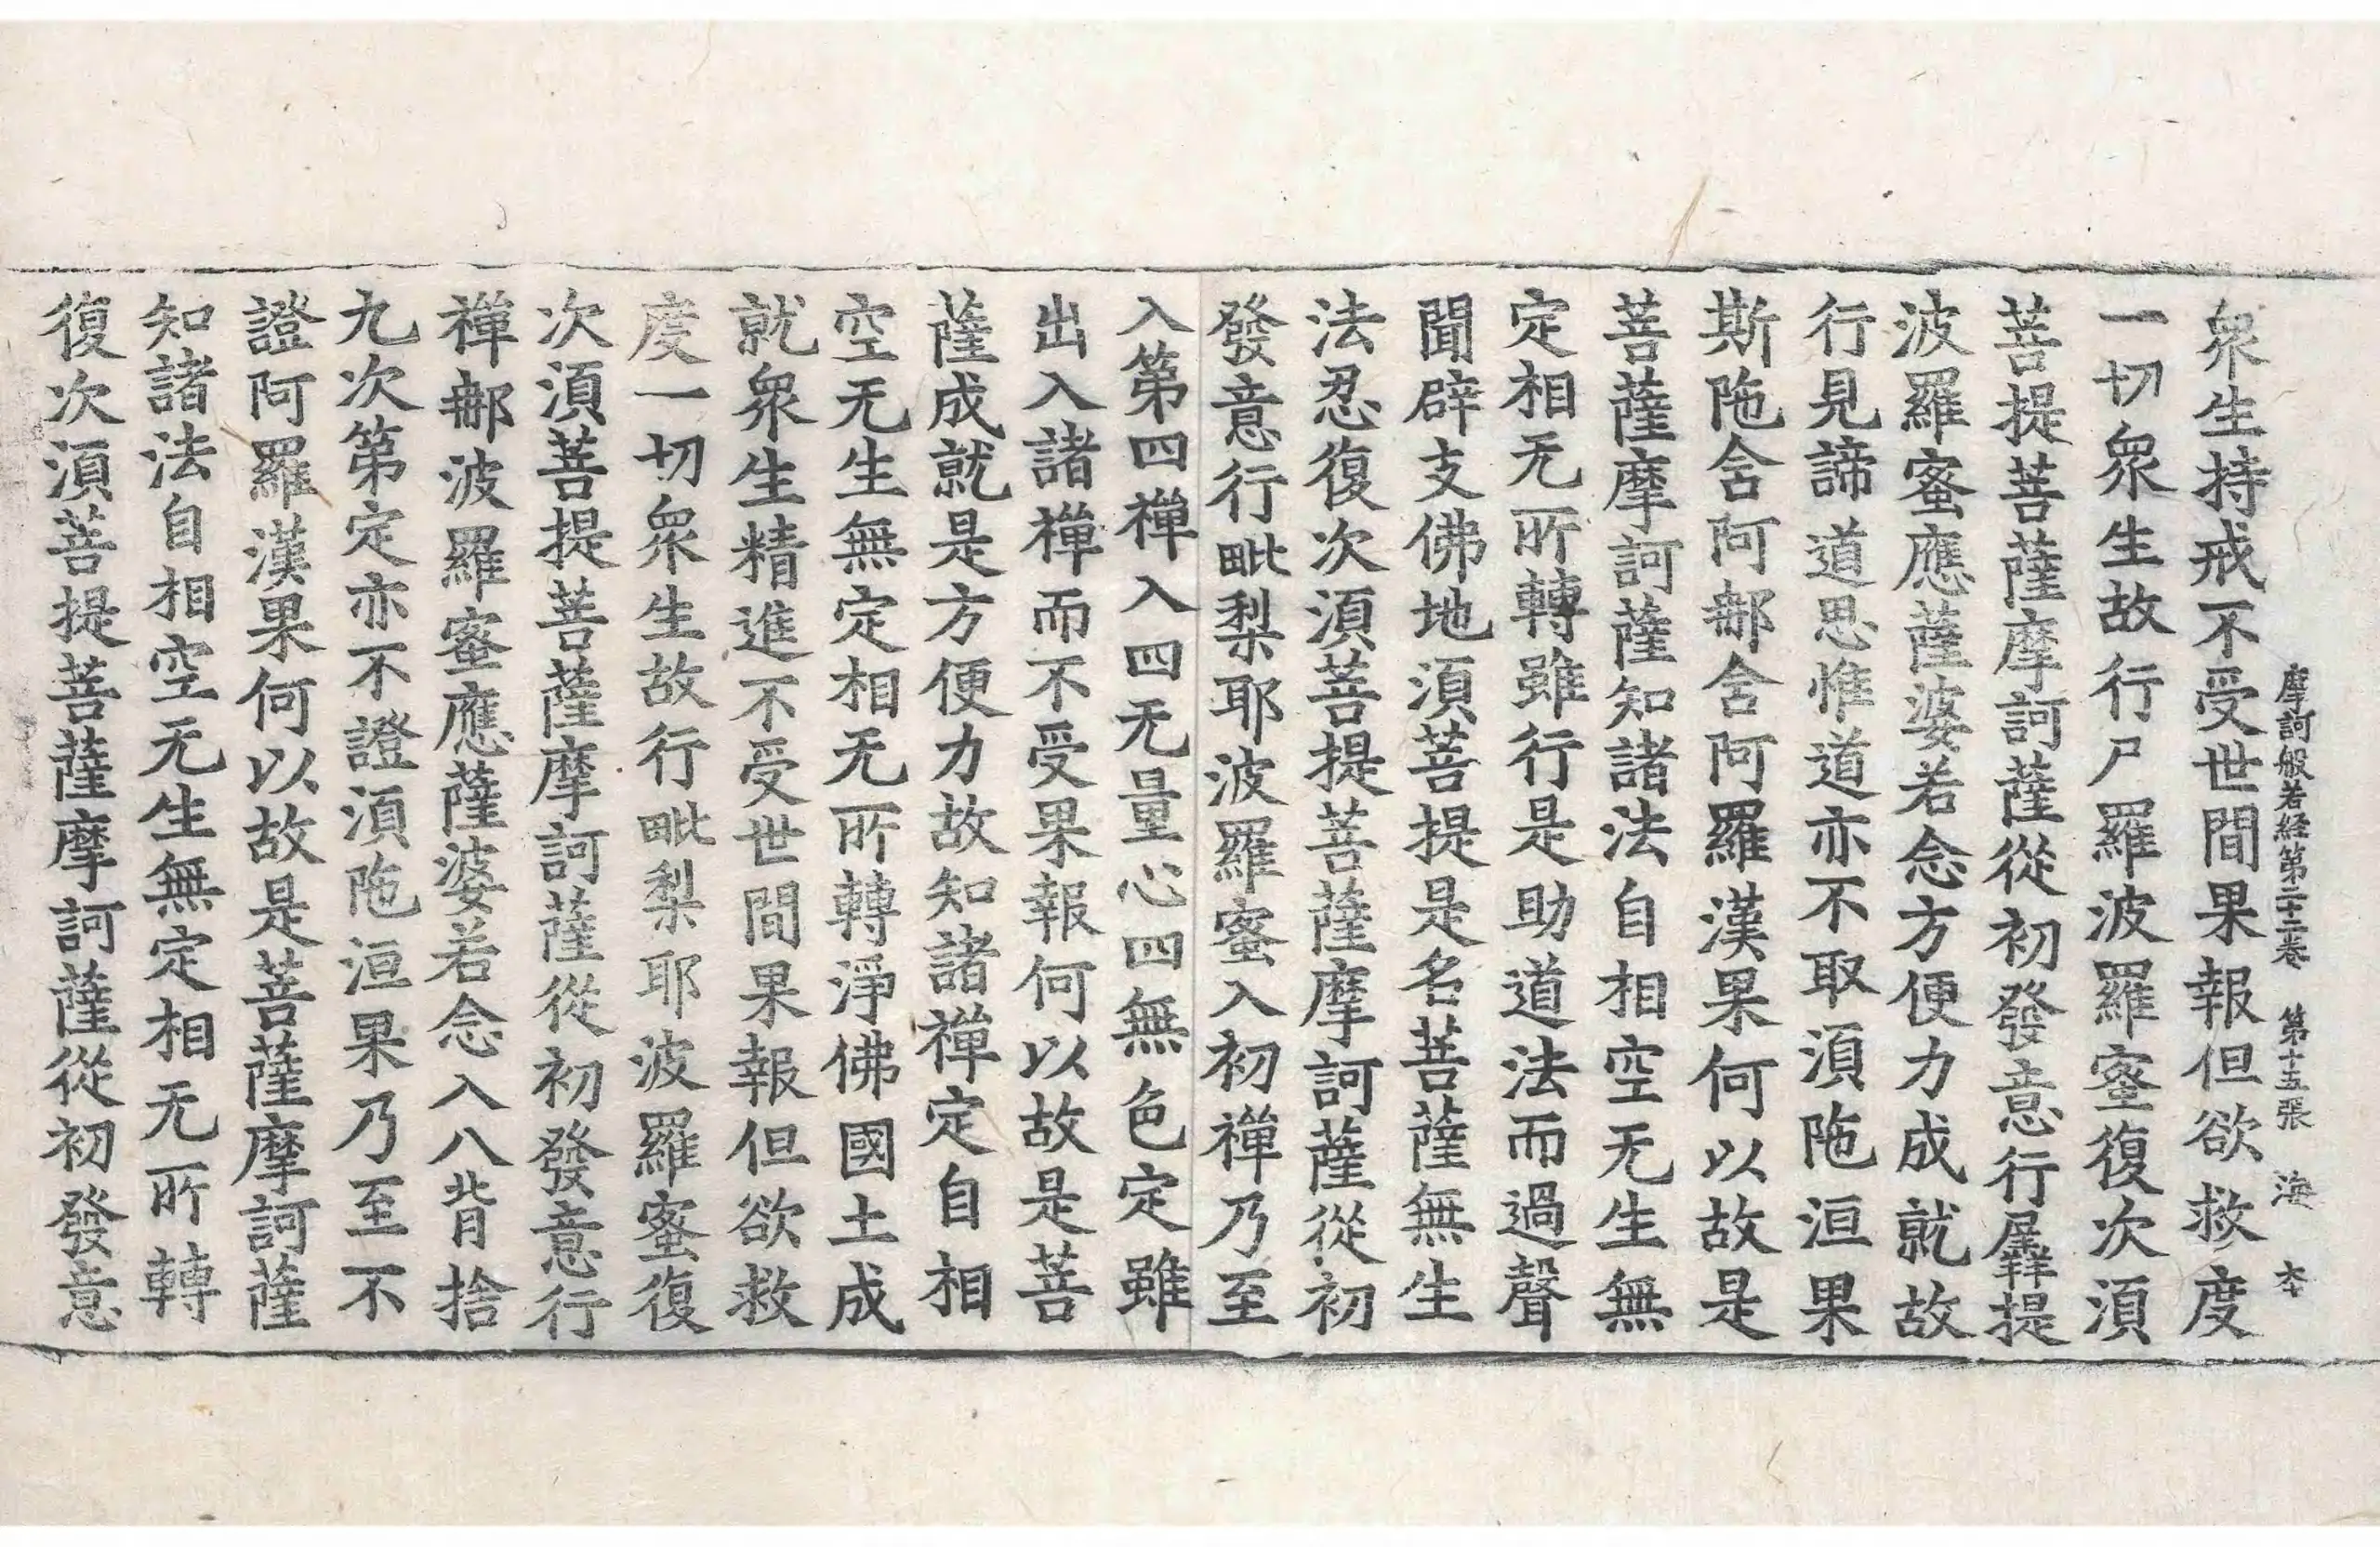 摩訶般若経第二十三卷　第十五張　海　夲
衆生持戒不受世間果報但欲救度
一切衆生故行尸羅波羅蜜復次須
菩提菩薩摩訶薩從初發意行羼提
波羅蜜應薩婆若念方便力成就故
行見諦道思惟道亦不取須陁洹果
斯陁含阿那含阿羅漢果何以故是
菩薩摩訶薩知諸法自相空无生無
定相无所轉雖行是助道法而過聲
聞辟支佛地須菩提是名菩薩無生
法忍復次須菩提菩薩摩訶薩從初
發意行毗梨耶波羅蜜入初禪乃至
入第四禪入四无量心四無色定雖
出入諸禪而不受果報何以故是菩
薩成就是方便力故知諸禪定自相
空无生無定相无所轉淨佛國土成
就衆生精進不受世間果報但欲救
度一切衆生故行毗梨耶波羅蜜復
次須菩提菩薩摩訶薩從初發意行
禪那波羅蜜應薩婆若念入八背捨
九次第定亦不證須陁洹果乃至不
證阿羅漢果何以故是菩薩摩訶薩
知諸法自相空无生無定相无所轉
復次須菩提菩薩摩訶薩從初發意